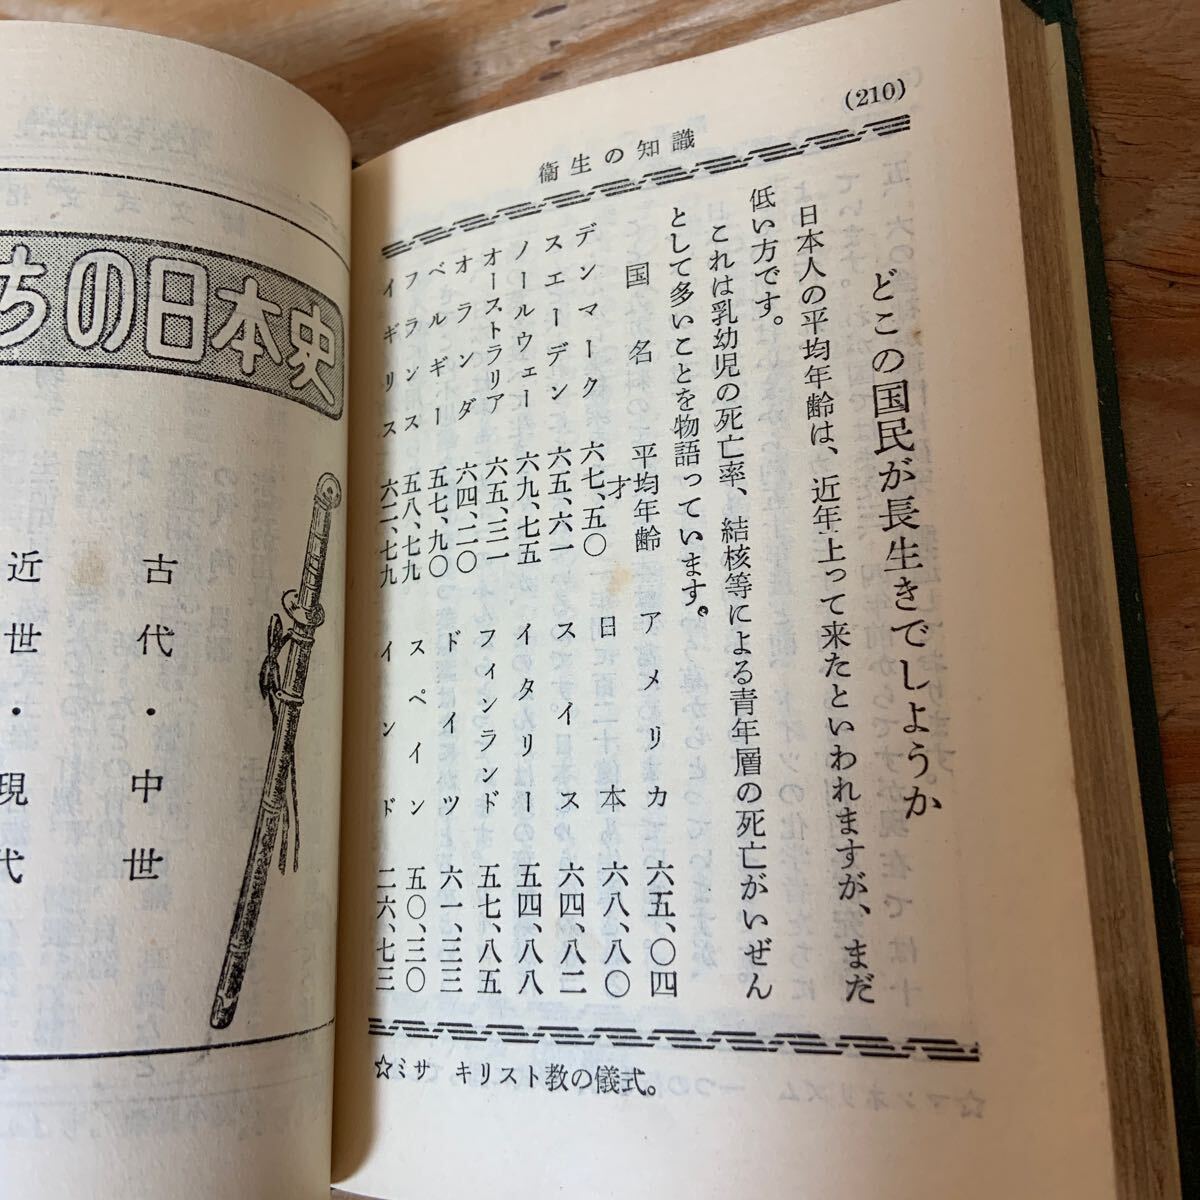 (210)
衞生の知識
どこの国民が長生きでしようか
日本人の平均年齢は、近年上って来たといわれますが、まだ
低い方です。
これは乳幼児の死亡率、結核等による青年層の死亡がいぜん
として多いことを物語っています。
国名 平均年齢
才
デンマーク 六七、五〇
スエーデン 六五、六一
ノールウェー 六九、七五
オーストラリア 六五、三一
オランダ 六四、二〇
ベルギー 五七、九〇
フランス 五八、七九
イギリス 六二、七九
アメリカ 六五、〇四
日本 六八、八〇
スイス 六四、八二
イタリー 五四、八八
フィンランド 五七、八五
ドイツ 六一、三三
スペイン 五〇、三〇
インド 二六、七三
☆ミサ キリスト教の儀式。
ちの日本史
古代・中世
近世・現代